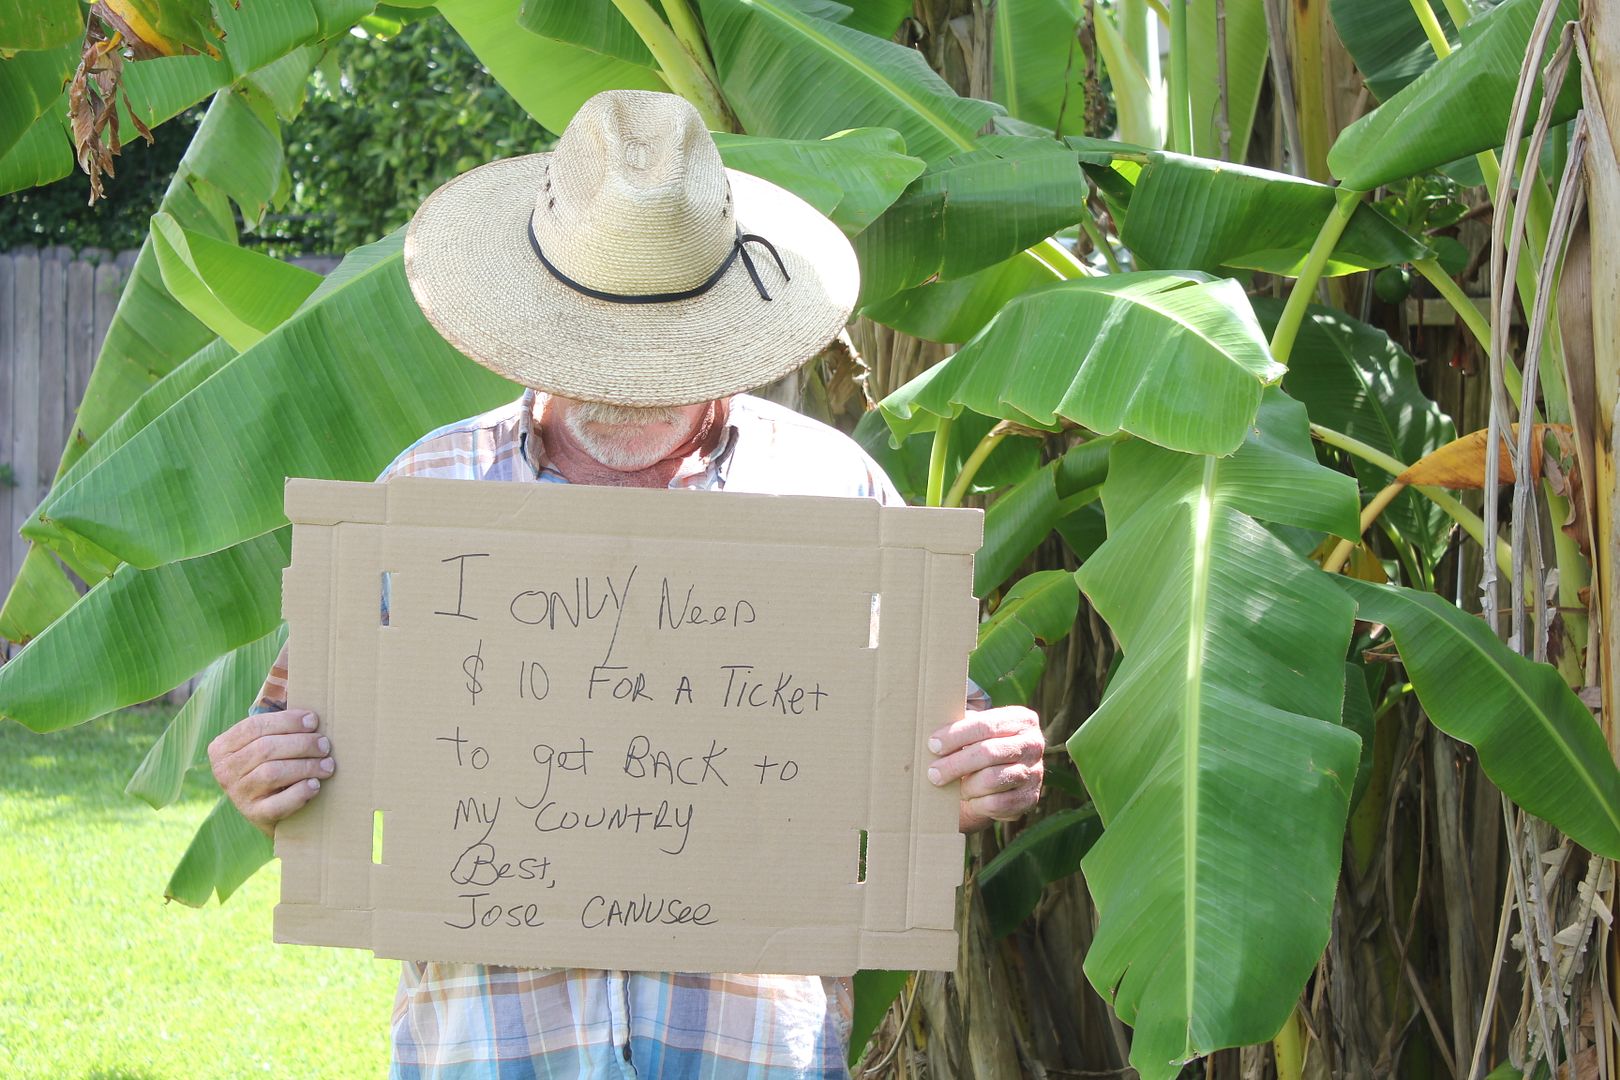 I ONLY NEED
$10 FOR A TICKet
to get BACK to
My COUNtRY
Best,
Jose CANUSee